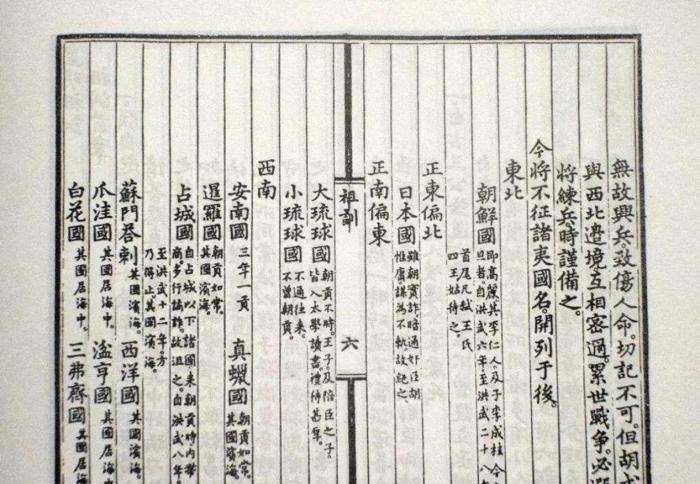 無故興兵。致傷人命。切記不可。但胡戎
與西北邊境互相密邇。累世戰爭。必選
將練兵。時謹備之。
今將不征諸夷國名。開列于後。
東北
朝鮮國 即高麗。其李仁人。及子李成桂今
旦者。自洪武六年。至洪武二十八
首尾凡弒王氏
四王。姑待之。
正東偏北
日本國 雖朝實詐。暗通奸臣胡
惟庸。謀為不軌。故絕之。
正南偏東
祖訓 六
大琉球國 朝貢不時。王子及陪臣之子。
皆入太學讀書。禮待甚厚。
小琉球國 不通往來。
不曾朝貢。
西南
安南國 三年一貢 真蠟國 朝貢如常。
其國濱海。
暹羅國 朝貢如常。
其國濱海。
占城國 自占城以下諸國來朝貢時。內帶
商。多行譎詐。故沮之。自洪武八年
至洪武十二年。方
乃得止。其國濱海。
蘇門荅剌 其國濱海。 西洋國 其國濱海。
爪洼國 其國居海中。 湓亨國 其國居海中
白花國 其國居海中。 三弗齊國 其國居海